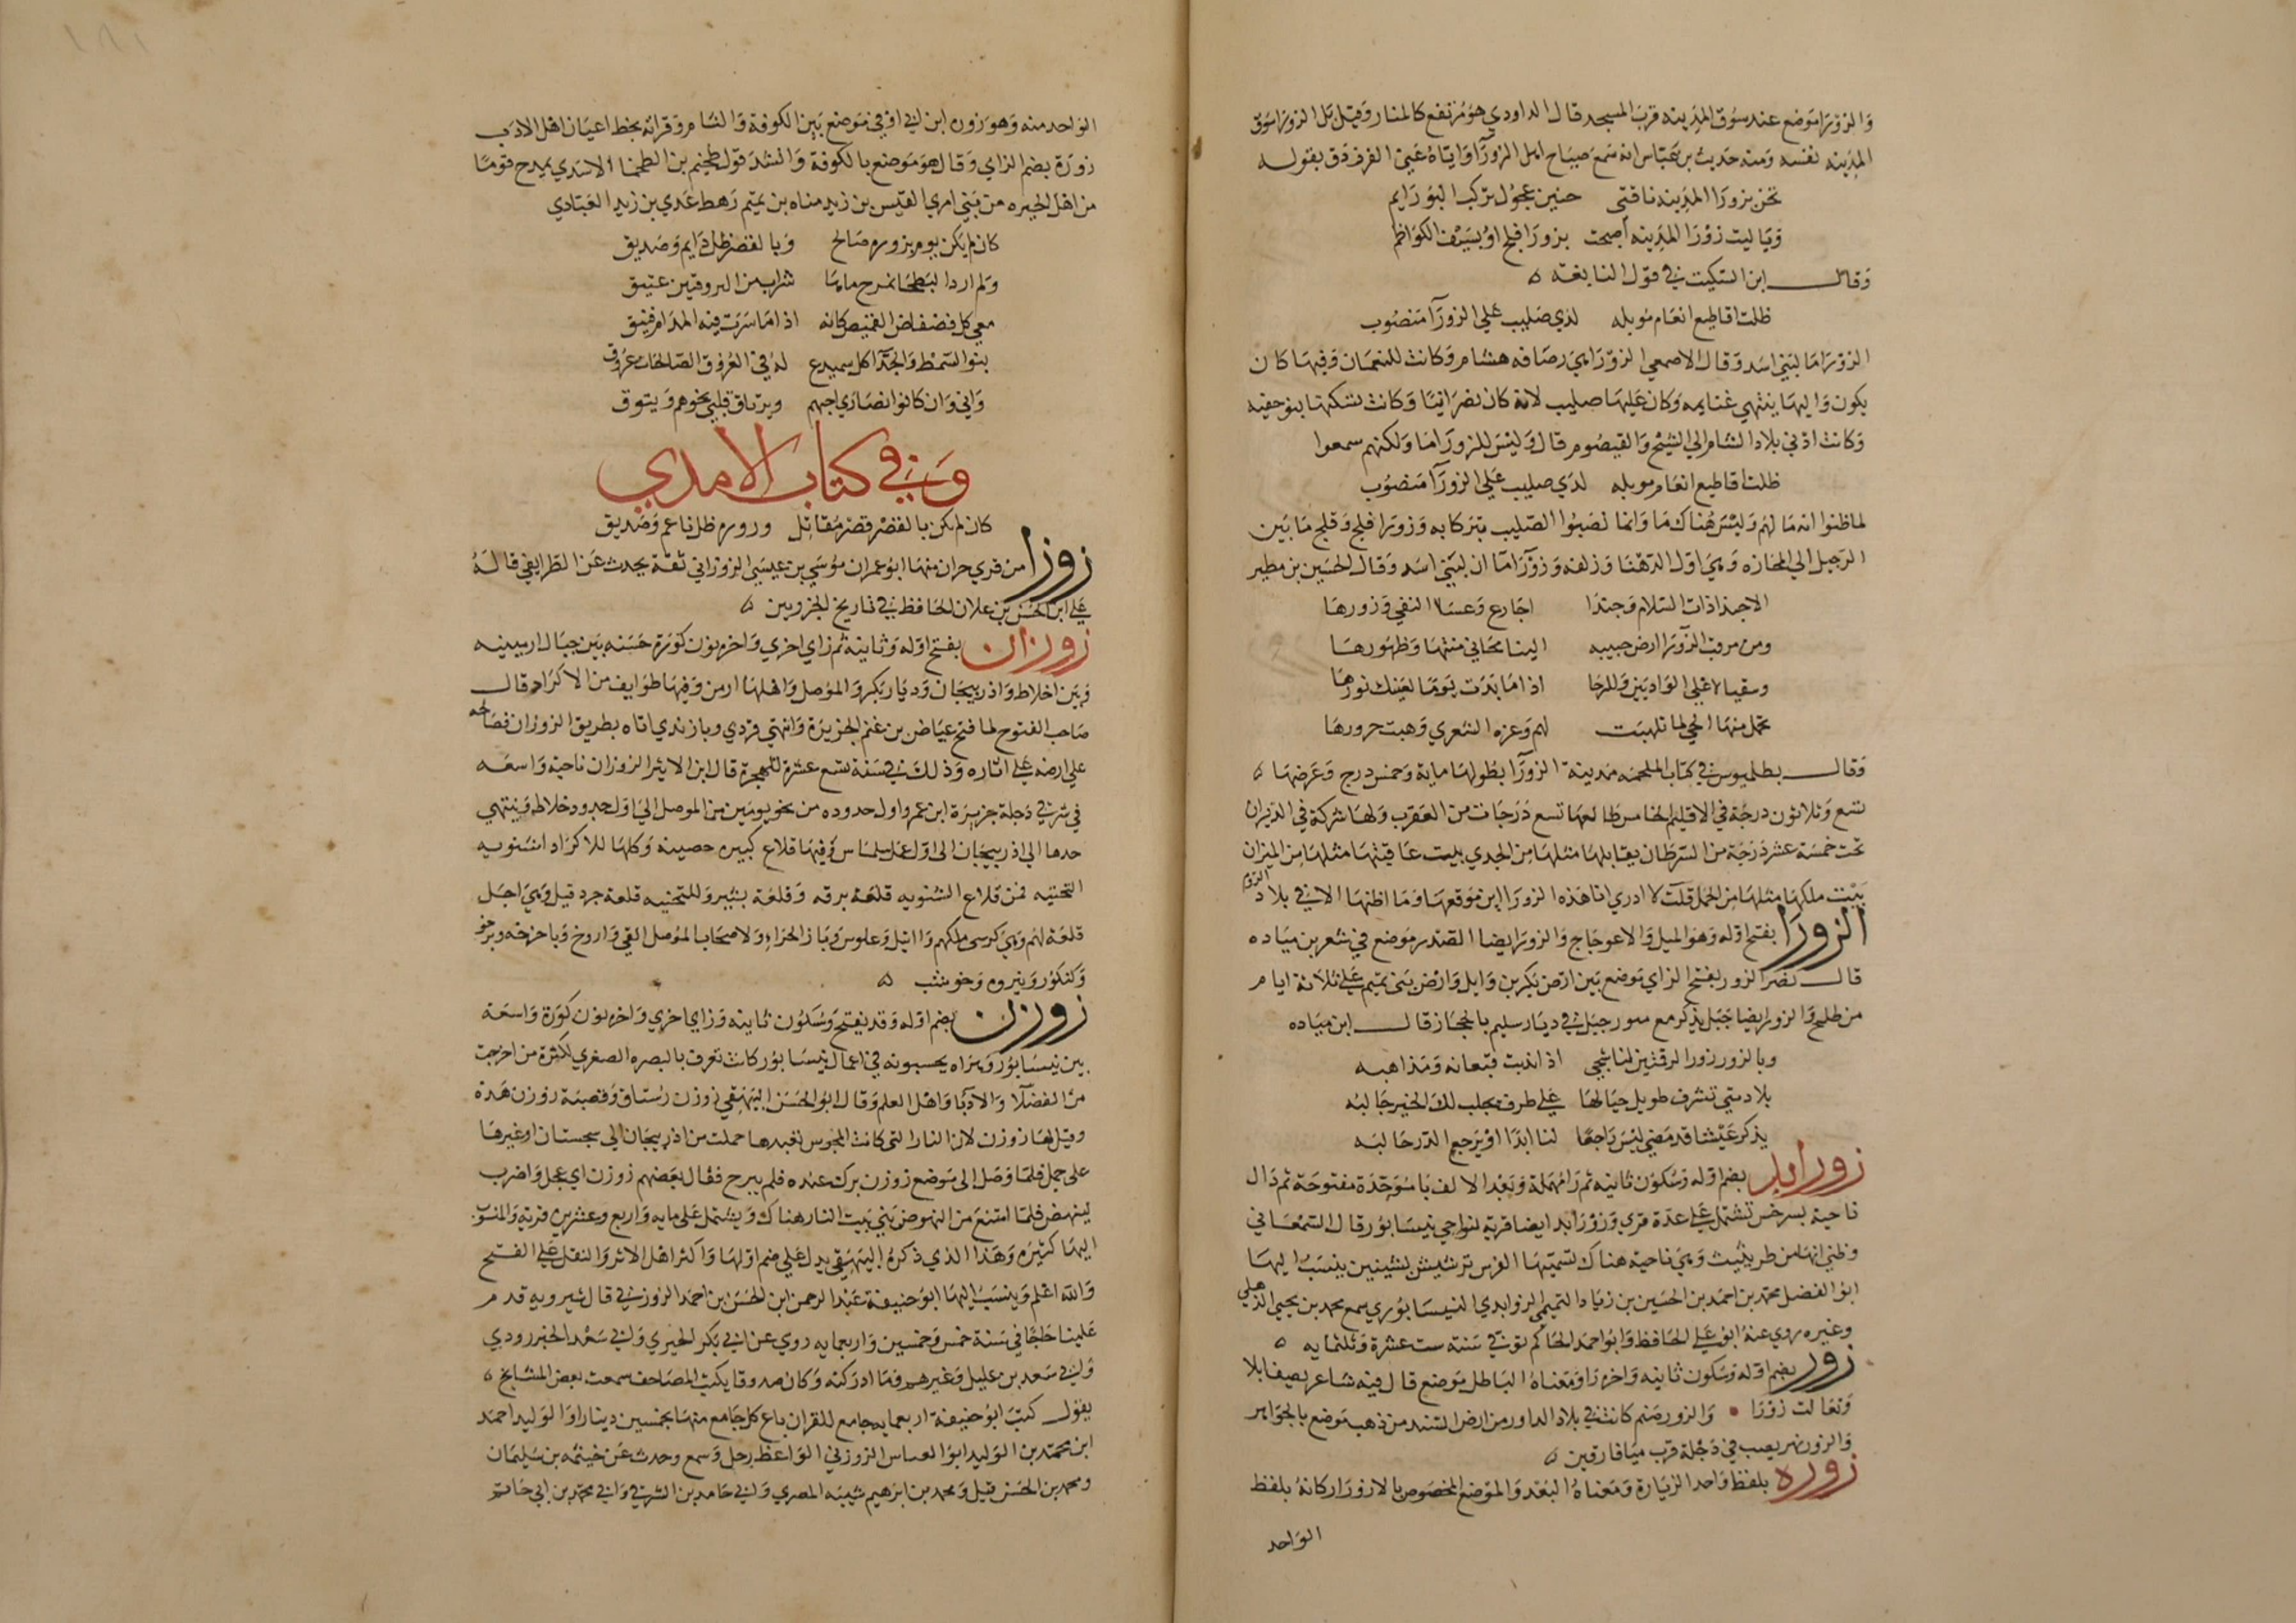 والزورا موضع عند سوق المدينه قرب المسجد قال الداودي هو مرتفع كالمنار وقيل بل الزورا سوق
المدينه نفسه ومنه حديث بن عباس انه سمع صياح اهل الزورآ واياه عنى الفرزدق بقوله
تحن بزورا المدينه ناقتى حنين عجول تركب البو رايم
ويا ليت زورا المدينه أصبحت بزورا فلج او بسيف الكواظم
وقال ابن السكيت في قول النابغه
ظلت اقاطيع انعام موبله لدي صليب علي الزورآ منصوب
الزورا ما لبني اسد وقال الاصمعي الزورا هي رصافه هشام وكانت للنعمان وفيها كان
يكون واليها ينتهي غنايمه وكان عليها صليب لانه كان نصرانيا وكانت تسكنها بنو حفنه
وكانت ادني بلاد الشام الي الشيح والقيصوم قال وليس للزورا ما ولكنهم سمعوا
ظلت اقاطيع انعام موبله لدي صليب علي الزورآ منصوب
لما ظنوا انه ما لهم وليس هناك ما وانما نصبوا الصليب تبركا به وزورا فلج وفلج ما بين
الرحيل الي المجازه وهي اول الدهنا وزلفه وزورا ماان لبني اسد وقال الحسين بن مطير
الا حبذا ذات السلام وحبذا اجارع وعسا النفي وزورها
ومن مرقب الزورا ارض حبيبه الينا محاني متنها وظهورها
وسقيا لاعلي الواديين وللرحا اذا ما بدت يوما لعينك نورها
تحمل منها الحي لما تلهبت لهم وغره الشعري وهبت حرورها
وقال بطلميوس في كتاب الملحمه مدينة الزورآ بطولها ماية وخمس درج وعرضها
تسع وثلاثون درجة في الاقليم الخامس طالعها تسع درجات من العقرب ولها شركة في الدبران
تحت خمسة عشر درجة من السرطان يقابلها مثلها من الجدي بيت عاقبتها مثلها من الميزان
بيت ملكها مثلها من الحمل قلت لا ادري انا هذه الزورا اين موقعها وما اظنها الا في بلاد الروم
الزورا بفتح اوله وهو الميل والاعوجاج والزور ايضا الصدر موضع في شعر بن مياده
قال نصر الزور بفتح الزاي موضع بين ارض بكر بن وايل وارض بني تميم علي ثلاثة ايام
من طلح والزور ايضا جبل يذكر مع منور جبل في ديار سليم بالحجاز قال ابن مياده
وبالزور زور الرقمتين لنا شجي اذا نديت قيعانه ومذاهبه
بلاد متي تشرف طويل جبالها علي طرف يجلب لك الخير جالبه
يذكر عيشا قد مضي ليس راجعا لنا ابدا او يرجع الدر حالبه
زورابد بضم اوله وسكون ثانيه ثم را مهملة وبعد الالف با موحدة مفتوحة ثم دال
ناحية بسرخس تشتمل علي عدة قري وزورابد ايضا قرية لنواحي نيسابور قال السمعاني
وظني انها من طريثيث وهي ناحية هناك تسميها الفرس ترشيش بشينين ينسب اليها
ابو الفضل محمد بن احمد بن الحسين بن زياد التميمي الزورابدي النيسابوري سمع محمد بن يحيي الذهلي
وغيره روي عنه ابو علي الحافظ وابو احمد الحاكم توفي سنة ست عشرة وثلثمايه
زور بضم اوله وسكون ثانيه واخره را ومعناه الباطل موضع قال فيه شاعر يصف ابلا
وتعالت زورا والزور صنم كانت في بلاد الداور من ارض السند من ذهب موضع بالجواهر
والزور نهر يصب في دجلة قرب ميافارقين
زوره بلفظ واحد الزيارة ومعناه البعد والموضع المخصوص بالازورار كانه بلفظ
الواحد
الواحد منه وهو زوره ابن ابي اوفي موضع بين الكوفة والشام وقراته بخط اعيان اهل الادب
زورة بضم الزاي وقال هو موضع بالكوفة وانشد قول طخيم بن الطخما الاسدي يمدح قوما
من اهل الحيره من بني امري القيس بن زيد مناه بن تميم رهط عدي بن زيد العبادي
كان لم يكن يوم بزوره صالح وبالقصر ظل دايم وصديق
ولم ارد البطحا نمزج ماءها شراب من البروقتين عتيق
معي كل فضفاض القميص كانه اذا ما سرت فيه المدام فنيق
بنو السمط والجدآ كل سميدع له في العروق الصالحات عروق
واني وان كانوا نصاري احبهم ويرتاق قلبي نحوهم ويتوق
وفي كتاب الامدي
كان لم يكن بالقصر قصر مقاتل وزوره ظل ناعم وصديق
زوزا من قري حران منها ابو عمران موسي بن عيسي الزوزاني ثقة يحدث عن الطرايفي قاله
علي ابن الحسن بن علان الحافظ في تاريخ الجزريين
زوزان بفتح اوله وثانيه ثم زاي اخري واخره نون كورة حسنه بين جبال ارمينيه
وبين اخلاط واذربيجان وديار بكر والموصل واهلها ارمن وفيها طوايف من الاكراد قال
صاحب الفتوح لما فتح عياض بن غنم الجزيرة وانتهي قردي وبازندي اتاه بطريق الزوزان فصالحه
علي ارضه علي اتاوه وذلك في سنة تسع عشرة للهجرة قال ابن الاثير الزوزان ناحية واسعه
في شرقي دجلة جزيرة ابن عمر واول حدوده من نحو يومين من الموصل الي اول حدود خلاط وينتهي
حدها الي اذربيجان الي اول عمل سلماس وفيها قلاع كبيره حصينة وكلها للاكراد البشنويه
التختيه فمن قلاع البشنويه قلعة برقه وقلعة بشير وللبختيه قلعة جردقيل وهي اجل
قلعة لهم وهي كرسي ملكهم واتيل وعلوس وباز الحمراء ولاصحاب الموصل القي واروخ وباخوخه وبرخو
وكنكور ونيروه وخوشب
زوزن بضم اوله وقد يفتح وسكون ثانيه وزاي اخري واخره نون كورة واسعة
بين نيسابور وهراه يحسبونه في اعمال نيسابور كانت تعرف بالبصره الصغري لكثرة من اخرجت
من الفضلآ والادبا واهل العلم وقال ابو الحسن البيهقي زوزن رستاق وقصبته زوزن هذه
وقيل لها زوزن لان النار التي كانت المجوس تعبدها حملت من اذربيجان الي سجستان وغيرها
علي جمل فلما وصل الي موضع زوزن برك عنده فلم يبرح فقال بعضهم زوزن اي عجل واضرب
لينهض فلما امتنع من النهوض بني بيت النار هناك ويشتمل علي مايه واربع وعشرين قرية والمنسوب
اليها كثيره وهذا الذي ذكره البيهقي يدل علي ضم اولها واكثر اهل الاثر والنقل علي الفتح
والله اعلم وينسب اليها ابو حنيفة عبد الرحمن ابن الحسن بن احمد الزوزني قال شيرويه قدم
علينا حاجا في سنة خمس وخمسين واربعمايه روي عن ابي بكر الحيري وابي سعد الخبررودي
وابي سعد بن عليل وغيرهم وما ادركته وكان صدوقا يكتب المصاحف سمعت بعض المشايخ
يقول كتب ابو حنيفة اربعمايه جامع للقران باع كل جامع منها بخمسين دينارا والوليد احمد
ابن محمد بن الوليد ابو العباس الزوزني الواعظ رحل وسمع وحدث عن خيثمه بن سليمان
ومحمد بن الحسن قتيل ومحمد بن ابرهيم شيبه المصري وابي حامد بن الشرقي وابي محمد بن ابي حاتم